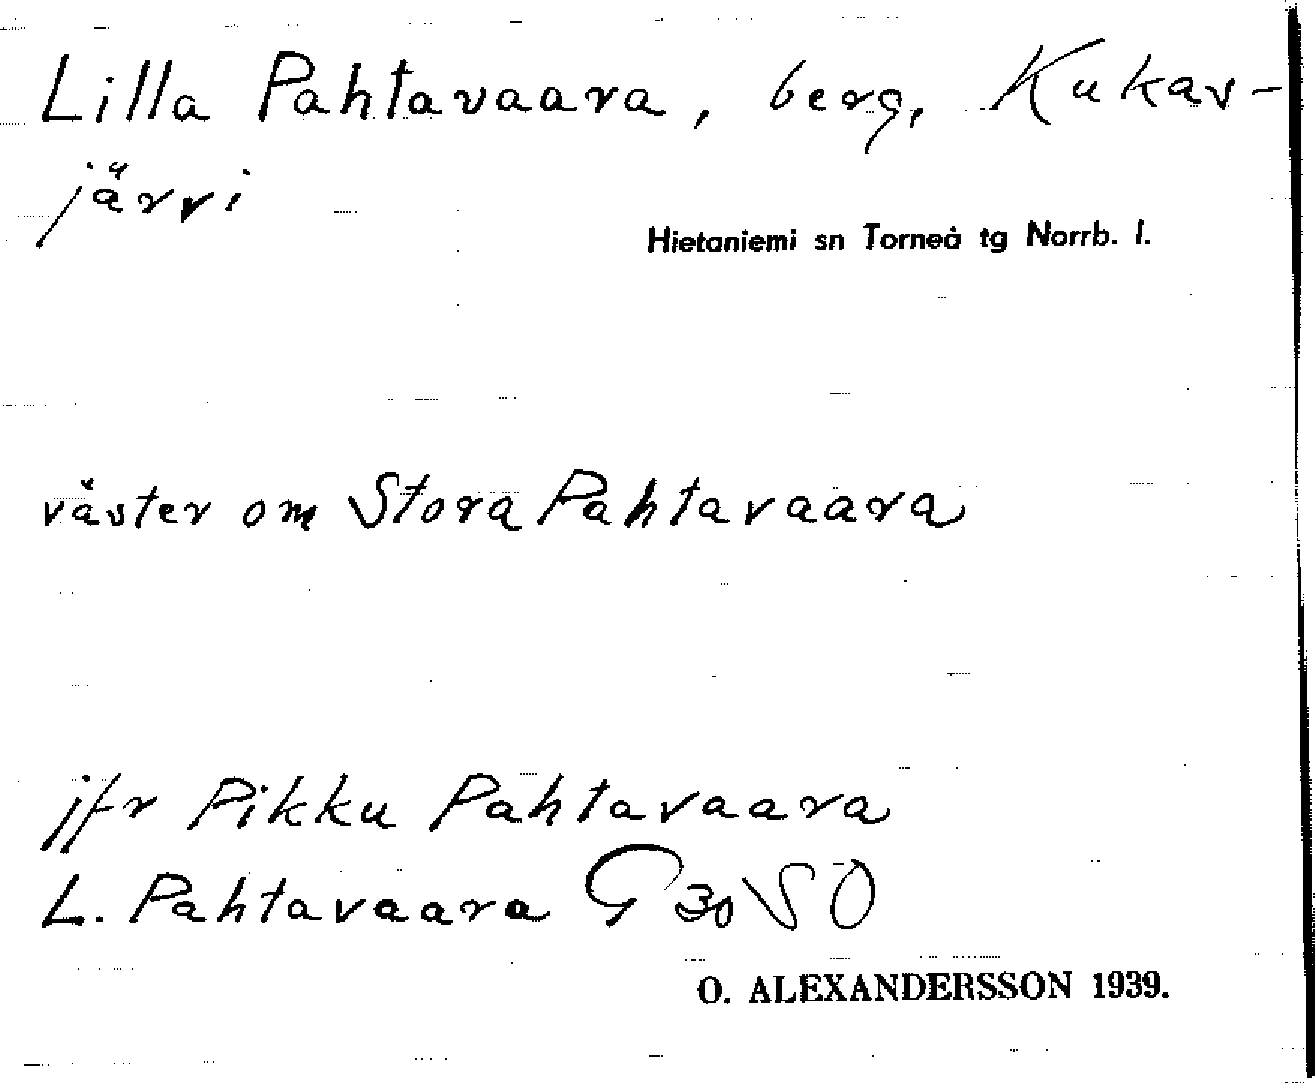 Lilla Pahtavaara, berg, Kukas-
järvi
Hietaniemi sn Torneå tg Norrb. l.
väster om Stora Pahtavaara
jfr Pikku Pahtavaara
L. Pahtavaara G 30 SO
O. ALEXANDERSSON 1939.